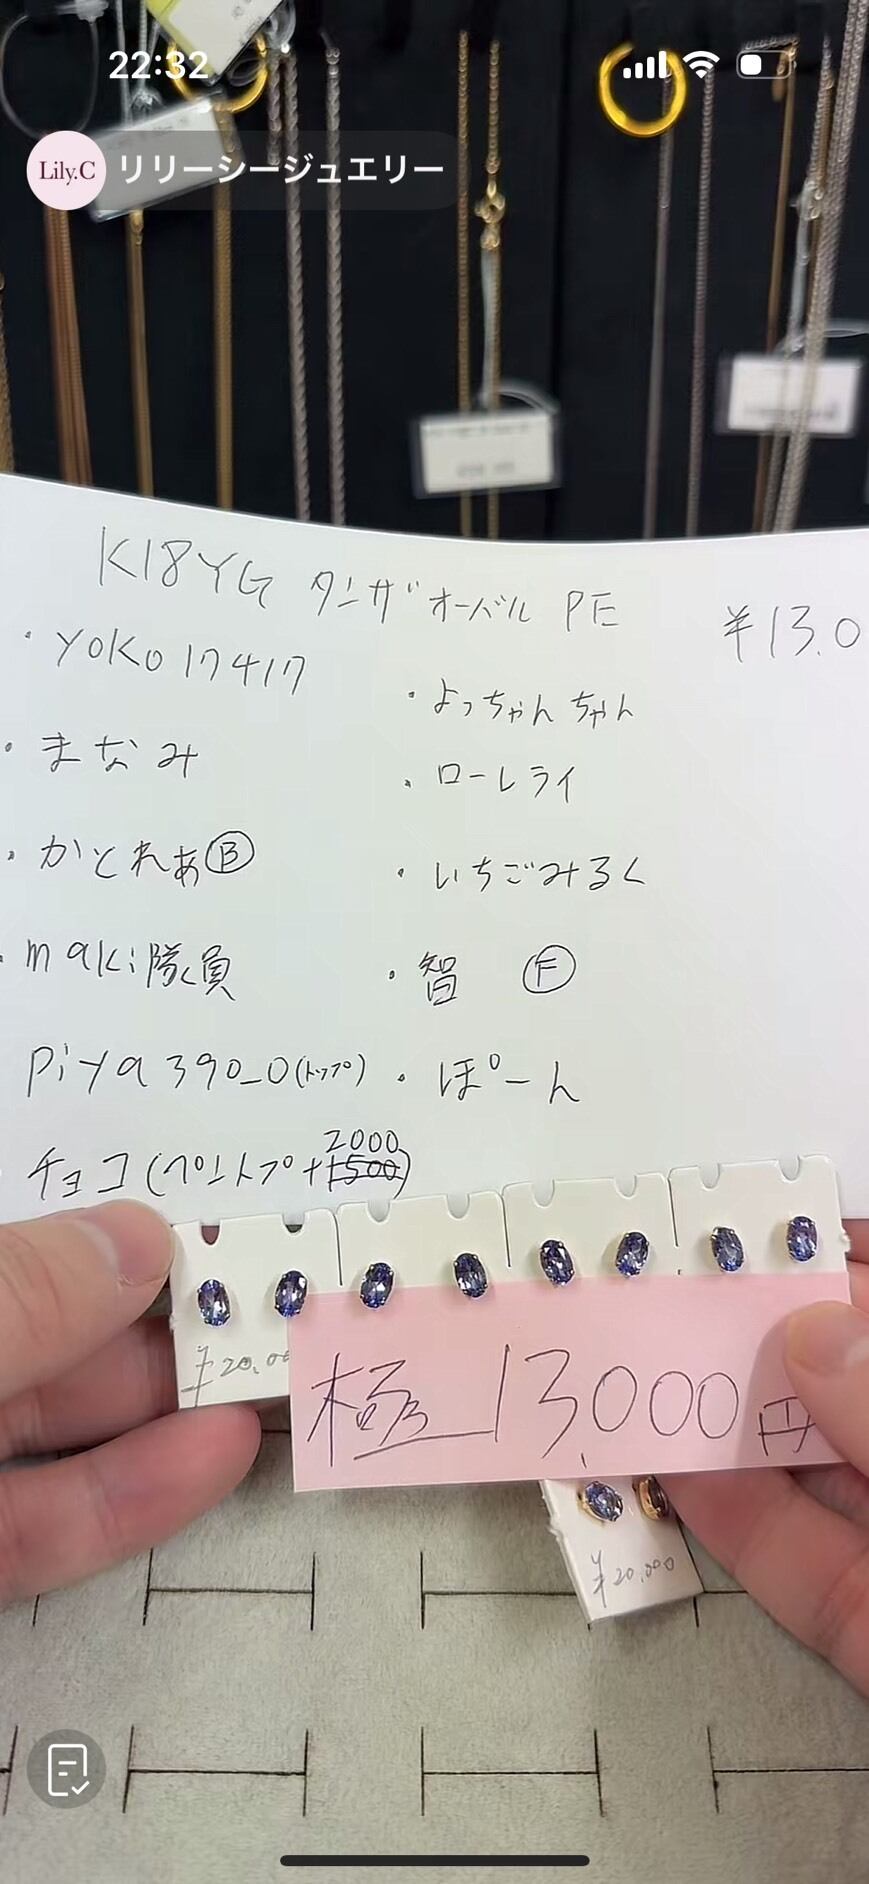 22:32
Lily.C リリーシージュエリー
K18YG タンザ オーバル PE ¥13.0
・YOKO17417
・まなみ
・かとれあⒷ
・maki隊員
Piya390_0(トップ)
チョコ(ペントプ+2000 1500)
・よっちゃんちゃん
・ローレライ
・いちごみるく
・智 Ⓕ
・ぽーん
¥20.00
極 13,000円
¥20,000